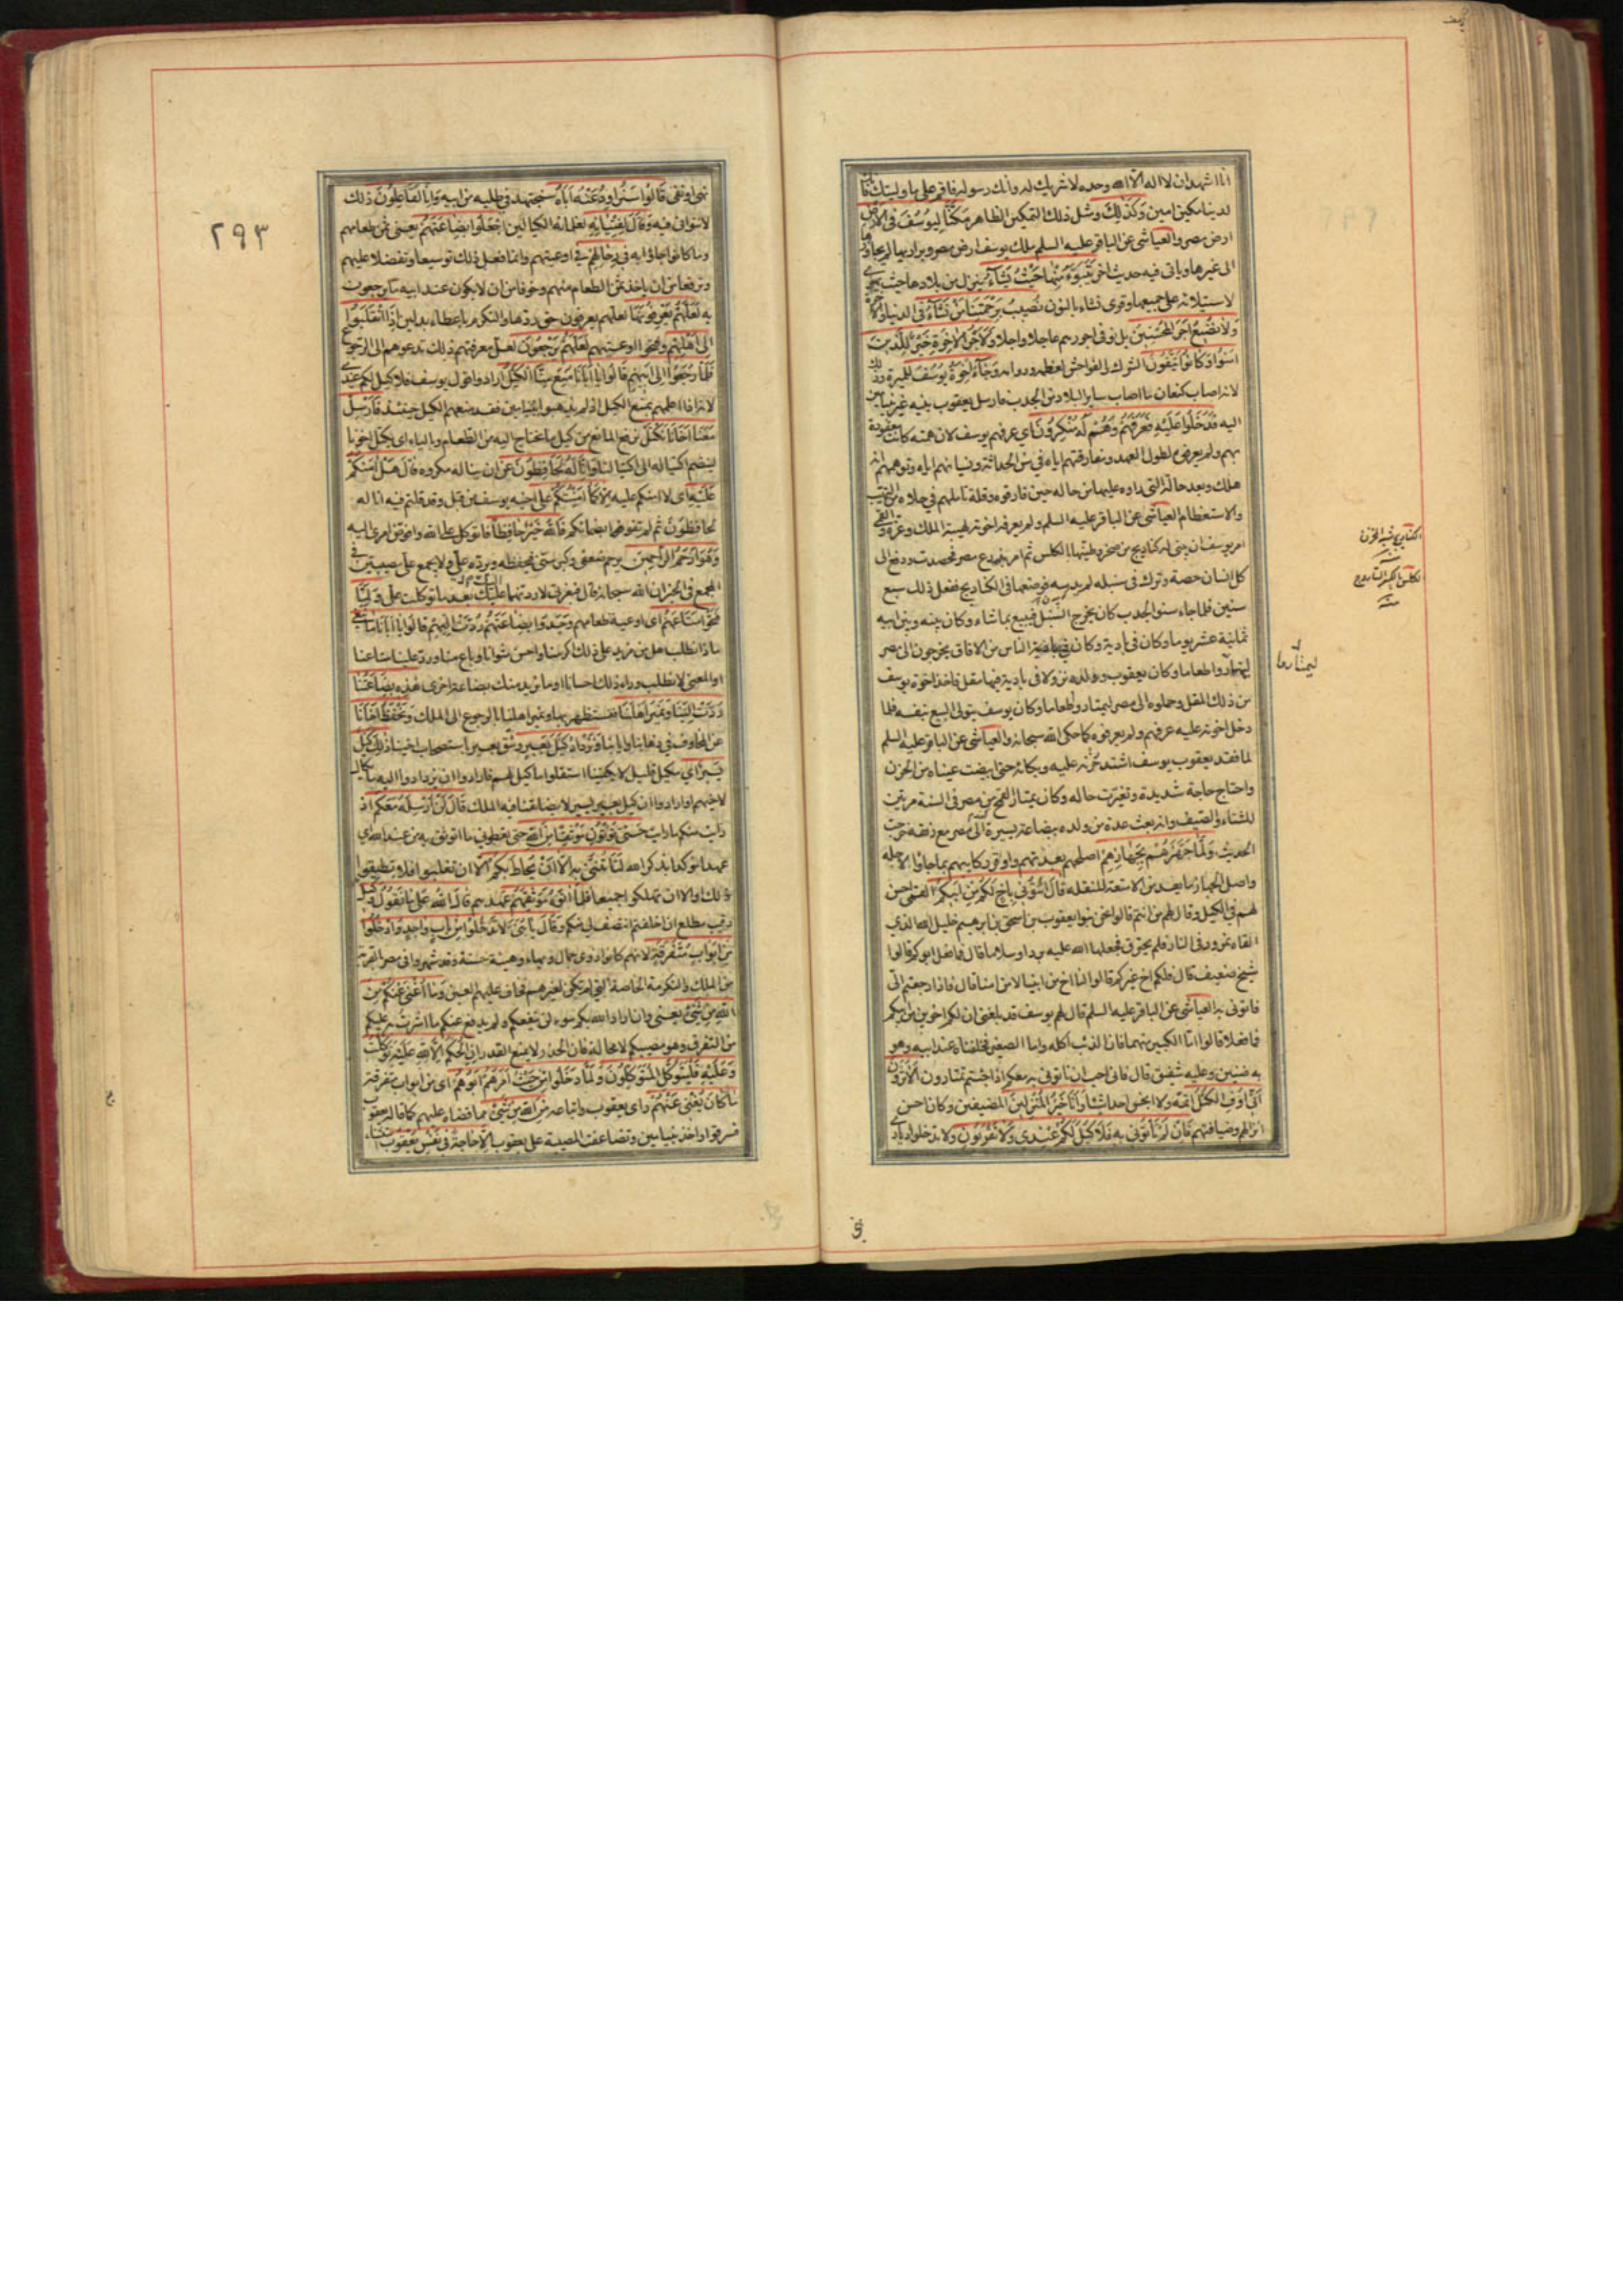 انا اشهد ان لا اله الا الله وحده لا شريك له وانك رسوله فاقم على ما وليتك فانك
لدينا مكين امين وَكَذٰلِكَ ومثل ذلك التمكين الظاهر مَكَّنَّا لِيُوسُفَ فِي الْاَرْضِ
ارض مصر والعياشى عن الباقر عليه السلم ملك يوسف ارض مصر وبراريها لم يجاوزها
الى غيرها وياتى فيه حديث اخر يَتَبَوَّءُ مِنْهَا حَيْثُ يَشَاءُ ينزل من بلادها حيث يهوى
لاستيلائه على جميعها وقرى نشاء بالنون نُصِيبُ بِرَحْمَتِنَا مَنْ نَشَاءُ فى الدنيا والاخرة
وَلَا نُضِيعُ اَجْرَ الْمُحْسِنِينَ بل نوفى اجورهم عاجلا واجلا وَلَاَجْرُ الْاٰخِرَةِ خَيْرٌ لِلَّذِينَ
اٰمَنُوا وَكَانُوا يَتَّقُونَ الشرك والفواحش لعظمه ودوامه وَجَاءَ اِخْوَةُ يُوسُفَ للميرة وذلك
لانه اصاب كنعان ما اصاب ساير البلاد من الجدب فارسل يعقوب بنيه غير بنيامين
اليه فَدَخَلُوا عَلَيْهِ فَعَرَفَهُمْ وَهُمْ لَهُ مُنْكِرُونَ اى عرفهم يوسف لان همته كانت معقودة
بهم ولم يعرفوه لطول العهد ومفارقتهم اياه فى سن الحداثة ونسيانهم اياه وتوهمهم انه
هلك وبعد حاله التى راوه عليها من حاله حين فارقوه وقلة تاملهم فى حلاه من التهيب
والاستعظام العياشى عن الباقر عليه السلم ولم يعرفه اخوته لهيبة الملك وعزه والقمى
امر يوسف ان يبنى له كناديج من صخر وطينها بالكلس ثم امر بزروع مصر فحصدت ودفع الى
كل انسان حصة وترك فى سنبله لم يدسه فوضعها فى الكناديج ففعل ذلك سبع
سنين فلما جاء سنو الجدب كان يخرج السنبل فيبيع بما شاء وكان بينه وبين ابيه
ثمانية عشر يوما وكان فى بادية وكان الناس من الافاق يخرجون الى مصر
ليمتاروا طعاما وكان يعقوب وولده نزولا فى بادية فيها مقل فاخذ اخوة يوسف
من ذلك المقل وحملوه الى مصر ليمتاروا طعاما وكان يوسف يتولى البيع بنفسه فلما
دخل اخوته عليه عرفهم ولم يعرفوه كما حكى الله سبحانه والعياشى عن الباقر عليه السلم
لما فقد يعقوب يوسف اشتد حزنه عليه وبكائه حتى ابيضت عيناه من الحزن
واحتاج حاجة شديدة وتغيرت حاله وكان يمتار القمح من مصر فى السنة مرتين
للشتاء والصيف وانه بعث عدة من ولده ببضاعة يسيرة الى مصر مع رفقة خرجت
الحديث وَلَمَّا جَهَّزَهُمْ بِجَهَازِهِمْ اصلحهم بعدتهم واوقر ركايبهم بما جاؤا لاجله
واصل الجهاز ما يعد من الامتعة للنقلة قَالَ ائْتُونِي بِاَخٍ لَكُمْ مِنْ اَبِيكُمْ القمى احسن
لهم فى الكيل وقال لهم من انتم قالوا نحن بنوا يعقوب بن اسحق بن ابرهيم خليل الله الذى
القاه نمرود فى النار فلم يحترق فجعلها الله عليه بردا وسلاما قال فما فعل ابوكم قالوا
شيخ ضعيف قال فلكم اخ غيركم قالوا لنا اخ من ابينا لا من امنا قال فاذا رجعتم الى
فاتونى به العياشى عن الباقر عليه السلم قال لهم يوسف قد بلغنى ان لكم اخوين من ابيكم
فما فعلا قالوا اما الكبير منهما فان الذئب اكله واما الصغير فخلفناه عند ابيه وهو
به ضنين وعليه شفيق قال فانى احب ان تاتونى به معكم اذا جئتم تمتارون اَلَا تَرَوْنَ
اَنِّي اُوفِ الْكَيْلَ اتمه ولا ابخس احدا شيئا وَاَنَا خَيْرُ الْمُنْزِلِينَ المضيفين وكان احسن
انزالهم وضيافتهم فَاِنْ لَمْ تَاْتُونِي بِهِ فَلَا كَيْلَ لَكُمْ عِنْدِي وَلَا تَقْرَبُونِ ولا تدخلوا ديارى
ليمتاروا
٢٩٣
نهى او نفى قَالُوا سَنُرَاوِدُ عَنْهُ اَبَاهُ سنجتهد فى طلبه من ابيه وَاِنَّا لَفَاعِلُونَ ذلك
لا نتوانى فيه وَقَالَ لِفِتْيَانِهِ لغلمانه الكيالين اجْعَلُوا بِضَاعَتَهُمْ يعنى ثمن طعامهم
وما كانوا جاؤا به فِي رِحَالِهِمْ فى اوعيتهم وانما فعل ذلك توسيعا وتفضلا عليهم
وترفعا من ان ياخذ ثمن الطعام منهم وخوفا من ان لا يكون عند ابيه ما يرجعون
به لَعَلَّهُمْ يَعْرِفُونَهَا لعلهم يعرفون حق ردها والتكرم باعطاء بدلين اِذَا انْقَلَبُوا
اِلٰى اَهْلِهِمْ وفتحوا اوعيتهم لَعَلَّهُمْ يَرْجِعُونَ لعل معرفتهم ذلك تدعوهم الى الرجوع
فَلَمَّا رَجَعُوا اِلٰى اَبِيهِمْ قَالُوا يَا اَبَانَا مُنِعَ مِنَّا الْكَيْلُ ارادوا قول يوسف فلا كيل لكم عندى
لانه اذا اعلمهم بمنع الكيل اذا لم يذهبوا ببنيامين فقد منعهم الكيل حينئذ فَاَرْسِلْ
مَعَنَا اَخَانَا نَكْتَلْ نرفع المانع من كيل ما نحتاج اليه من الطعام وبالياء اى يكتل اخونا
لينضم اكتياله الى اكتيالنا وَاِنَّا لَهُ لَحَافِظُونَ عن ان يناله مكروه قَالَ هَلْ اٰمَنُكُمْ
عَلَيْهِ اى لا امنكم عليه اِلَّا كَمَا اَمِنْتُكُمْ عَلٰى اَخِيهِ يوسف مِنْ قَبْلُ وقد قلتم فيه انا له
لحافظون ثم لم تفوا بضمانكم فَاللّٰهُ خَيْرٌ حَافِظًا فاتوكل على الله وافوض امرى اليه
وَهُوَ اَرْحَمُ الرَّاحِمِينَ يرحم ضعفى وكبر سنى فيحفظه ويرده على ولا يجمع على مصيبتين فى
المجمع فى الخبر ان الله سبحانه قال فبعزتى لاردنهما اليك بعد ما توكلت على وَلَمَّا
فَتَحُوا مَتَاعَهُمْ اى اوعية طعامهم وَجَدُوا بِضَاعَتَهُمْ رُدَّتْ اِلَيْهِمْ قَالُوا يَا اَبَانَا مَا نَبْغِي
ماذا نطلب هل من مزيد على ذلك اكرمنا واحسن مثوانا وباع منا ورد علينا متاعنا
او المعنى لا نطلب وراء ذلك احسانا او ما نريد منك بضاعة اخرى هٰذِهِ بِضَاعَتُنَا
رُدَّتْ اِلَيْنَا وَنَمِيرُ اَهْلَنَا فنستظهر بها ونمير اهلنا بالرجوع الى الملك وَنَحْفَظُ اَخَانَا
عن المخاوف فى ذهابنا وايابنا وَنَزْدَادُ كَيْلَ بَعِيرٍ وسق بعير باستصحاب اخينا ذٰلِكَ كَيْلٌ
يَسِيرٌ اى مكيل قليل لا يكفينا استقلوا ما كيل لهم فارادوا ان يزدادوا اليه ما يكال
لاخيهم او ارادوا ان كيل بعير يسير لا يضايقنا فيه الملك قَالَ لَنْ اُرْسِلَهُ مَعَكُمْ اذ
رايت منكم ما رايت حَتّٰى تُؤْتُونِ مَوْثِقًا مِنَ اللّٰهِ حتى تعطونى ما اتوثق به من عند الله اى
عهدا مؤكدا بذكر الله لَتَاْتُنَّنِي بِهِ اِلَّا اَنْ يُحَاطَ بِكُمْ الا ان تغلبوا فلا تطيقوا
ذلك او الا ان تهلكوا جميعا فَلَمَّا اٰتَوْهُ مَوْثِقَهُمْ عهدهم قَالَ اللّٰهُ عَلٰى مَا نَقُولُ وَكِيلٌ
رقيب مطلع ان اخلفتم انتصف لى منكم وَقَالَ يَا بَنِيَّ لَا تَدْخُلُوا مِنْ بَابٍ وَاحِدٍ وَادْخُلُوا
مِنْ اَبْوَابٍ مُتَفَرِّقَةٍ لانهم كانوا ذوى جمال وبهاء وهيئة حسنة وقد شهروا فى مصر بالقربة
من الملك والتكرمة الخاصة التى لم تكن لغيرهم فخاف عليهم العين وَمَا اُغْنِي عَنْكُمْ مِنَ
اللّٰهِ مِنْ شَيْءٍ يعنى وان اراد الله بكم سوء لن ينفعكم ولم يدفع عنكم ما اشرت به عليكم
من التفرق وهو مصيبكم لا محالة فان الحذر لا يمنع القدر اِنِ الْحُكْمُ اِلَّا لِلّٰهِ عَلَيْهِ تَوَكَّلْتُ
وَعَلَيْهِ فَلْيَتَوَكَّلِ الْمُتَوَكِّلُونَ وَلَمَّا دَخَلُوا مِنْ حَيْثُ اَمَرَهُمْ اَبُوهُمْ اى من ابواب متفرقة
مَا كَانَ يُغْنِي عَنْهُمْ راى يعقوب واتباعه مِنَ اللّٰهِ مِنْ شَيْءٍ مما قضاه عليهم كما قاله يعقوب
فسرقوا واخذ بنيامين وتضاعفت المصيبة على يعقوب اِلَّا حَاجَةً فِي نَفْسِ يَعْقُوبَ استثناء